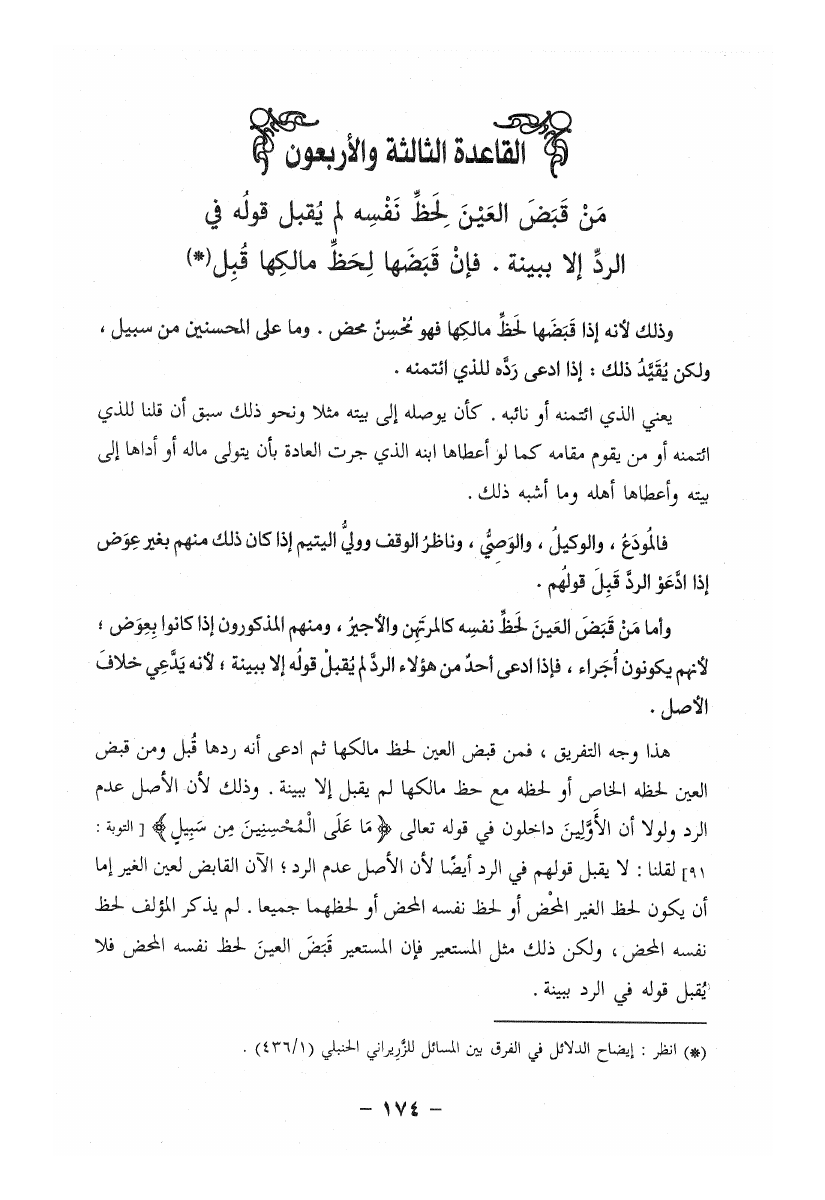 القاعدة الثالثة والأربعون
مَنْ قَبَضَ العَيْنَ لِحَظِّ نَفْسِه لم يُقبل قولُه في
الردِّ إلا ببينة . فإنْ قَبَضَها لِحَظِّ مالكِها قُبِل(*)
وذلك لأنه إذا قَبَضَها لحَظِّ مالكِها فهو مُحْسِنٌ محض . وما على المحسنين من سبيل ،
ولكن يُقَيَّدُ ذلك : إذا ادعى رَدَّه للذي ائتمنه .
يعني الذي ائتمنه أو نائبه . كأن يوصله إلى بيته مثلا ونحو ذلك سبق أن قلنا للذي
ائتمنه أو من يقوم مقامه كما لو أعطاها ابنه الذي جرت العادة بأن يتولى ماله أو أداها إلى
بيته وأعطاها أهله وما أشبه ذلك .
فالمُودَعُ ، والوكيلُ ، والوَصِيُّ ، وناظرُ الوقف ووليُّ اليتيم إذا كان ذلك منهم بغير عِوَض
إذا ادَّعَوْ الردَّ قَبِلَ قولُهم .
وأما مَنْ قَبَضَ العَينَ لحَظِّ نفسِه كالمرتَهِن والأجيرُ ، ومنهم المذكورون إذا كانوا بِعِوَض ؛
لأنهم يكونون أُجَراء ، فإذا ادعى أحدٌ من هؤلاء الردَّ لم يُقبلْ قولُه إلا ببينة ؛ لأنه يَدَّعِي خلافَ
الأصل .
هذا وجه التفريق ، فمن قبض العين لحظ مالكها ثم ادعى أنه ردها قُبل ومن قبض
العين لحظه الخاص أو لحظه مع حظ مالكها لم يقبل إلا ببينة . وذلك لأن الأصل عدم
الرد ولولا أن الأَوَّلِينَ داخلون في قوله تعالى ﴿ مَا عَلَى الْمُحْسِنِينَ مِن سَبِيلٍ ﴾ [ التوبة :
٩١] لقلنا : لا يقبل قولهم في الرد أيضًا لأن الأصل عدم الرد ؛ الآن القابض لعين الغير إما
أن يكون لحظ الغير المحْض أو لحظ نفسه المحض أو لحظهما جميعا . لم يذكر المؤلف لحظ
نفسه المحض ، ولكن ذلك مثل المستعير فإن المستعير قَبَضَ العينَ لحظ نفسه المحض فلا
يُقبل قوله في الرد ببينة .
(*) انظر : إيضاح الدلائل في الفرق بين المسائل للزَّرِيراني الحنبلي (٤٣٦/١) .
– ١٧٤ –